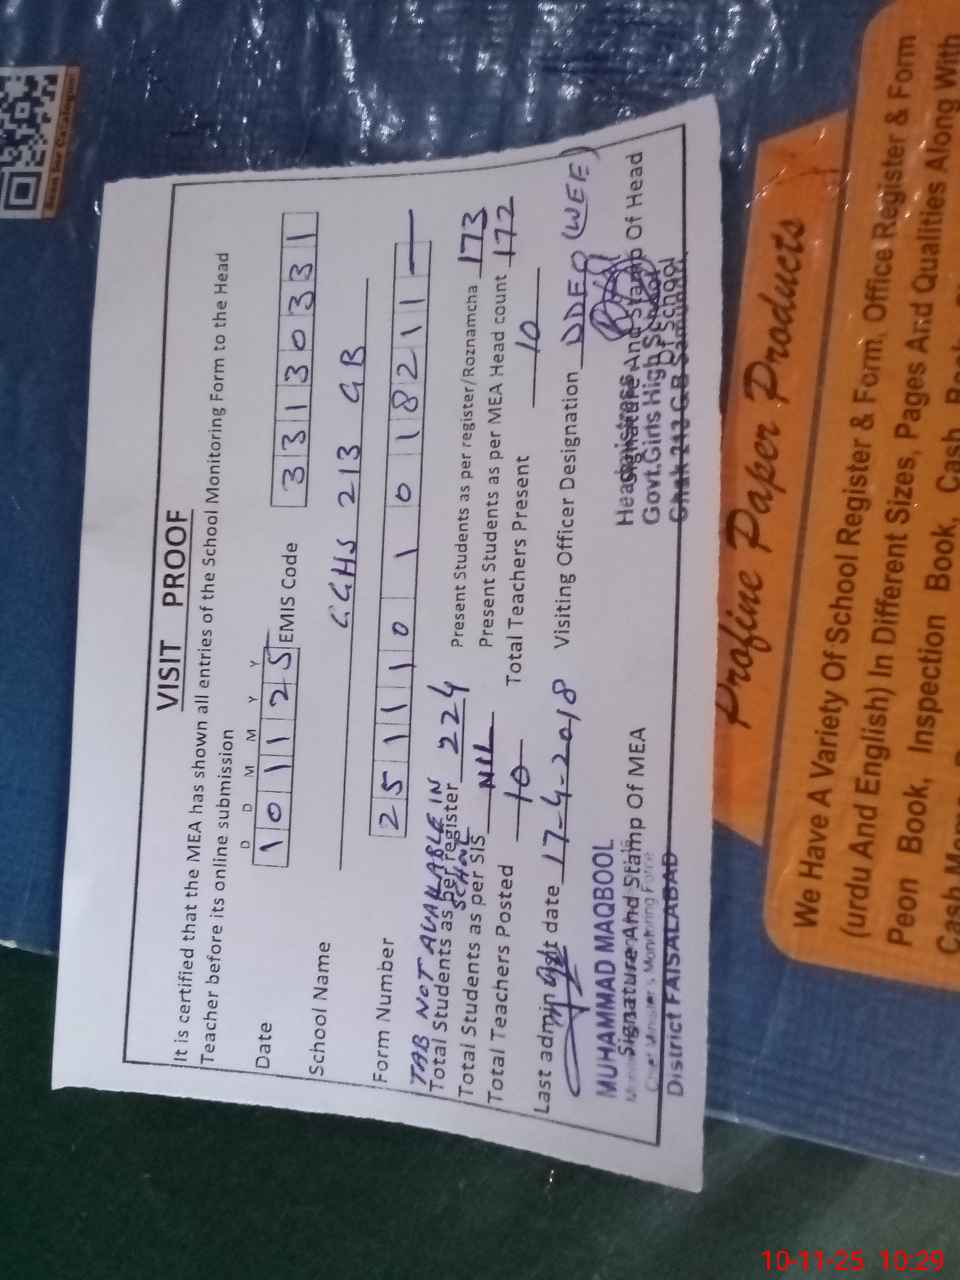 VISIT PROOF
It is certified that the MEA has shown all entries of the School Monitoring Form to the Head
Teacher before its online submission
D D M M Y Y
Date 101125 EMIS Code 33130331
School Name GGHS 213 GB
Form Number 25111010 01821 1—
TAB NOT AVAILABLE IN SCHOOL
Total Students as per register 224 Present Students as per register/Roznamcha 173
Total Students as per SIS NIL Present Students as per MEA Head count 172
Total Teachers Posted 10 Total Teachers Present 10
Last admin visit date 17-4-2018 Visiting Officer Designation DDEO (WEE)
MUHAMMAD MAQBOOL
Signature And Stamp Of MEA
Chief Minister's Monitoring Force
District FAISALABAD
Headmistress
Signature And Stamp Of Head
Govt.Girls High School
Of School
Chak 213 G.B
Scan for Catalogue
Profine Paper Products
We Have A Variety Of School Register & Form, Office Register & Form
(urdu And English) In Different Sizes, Pages And Qualities Along With
Peon Book, Inspection Book, Cash
10-11-25 10:29